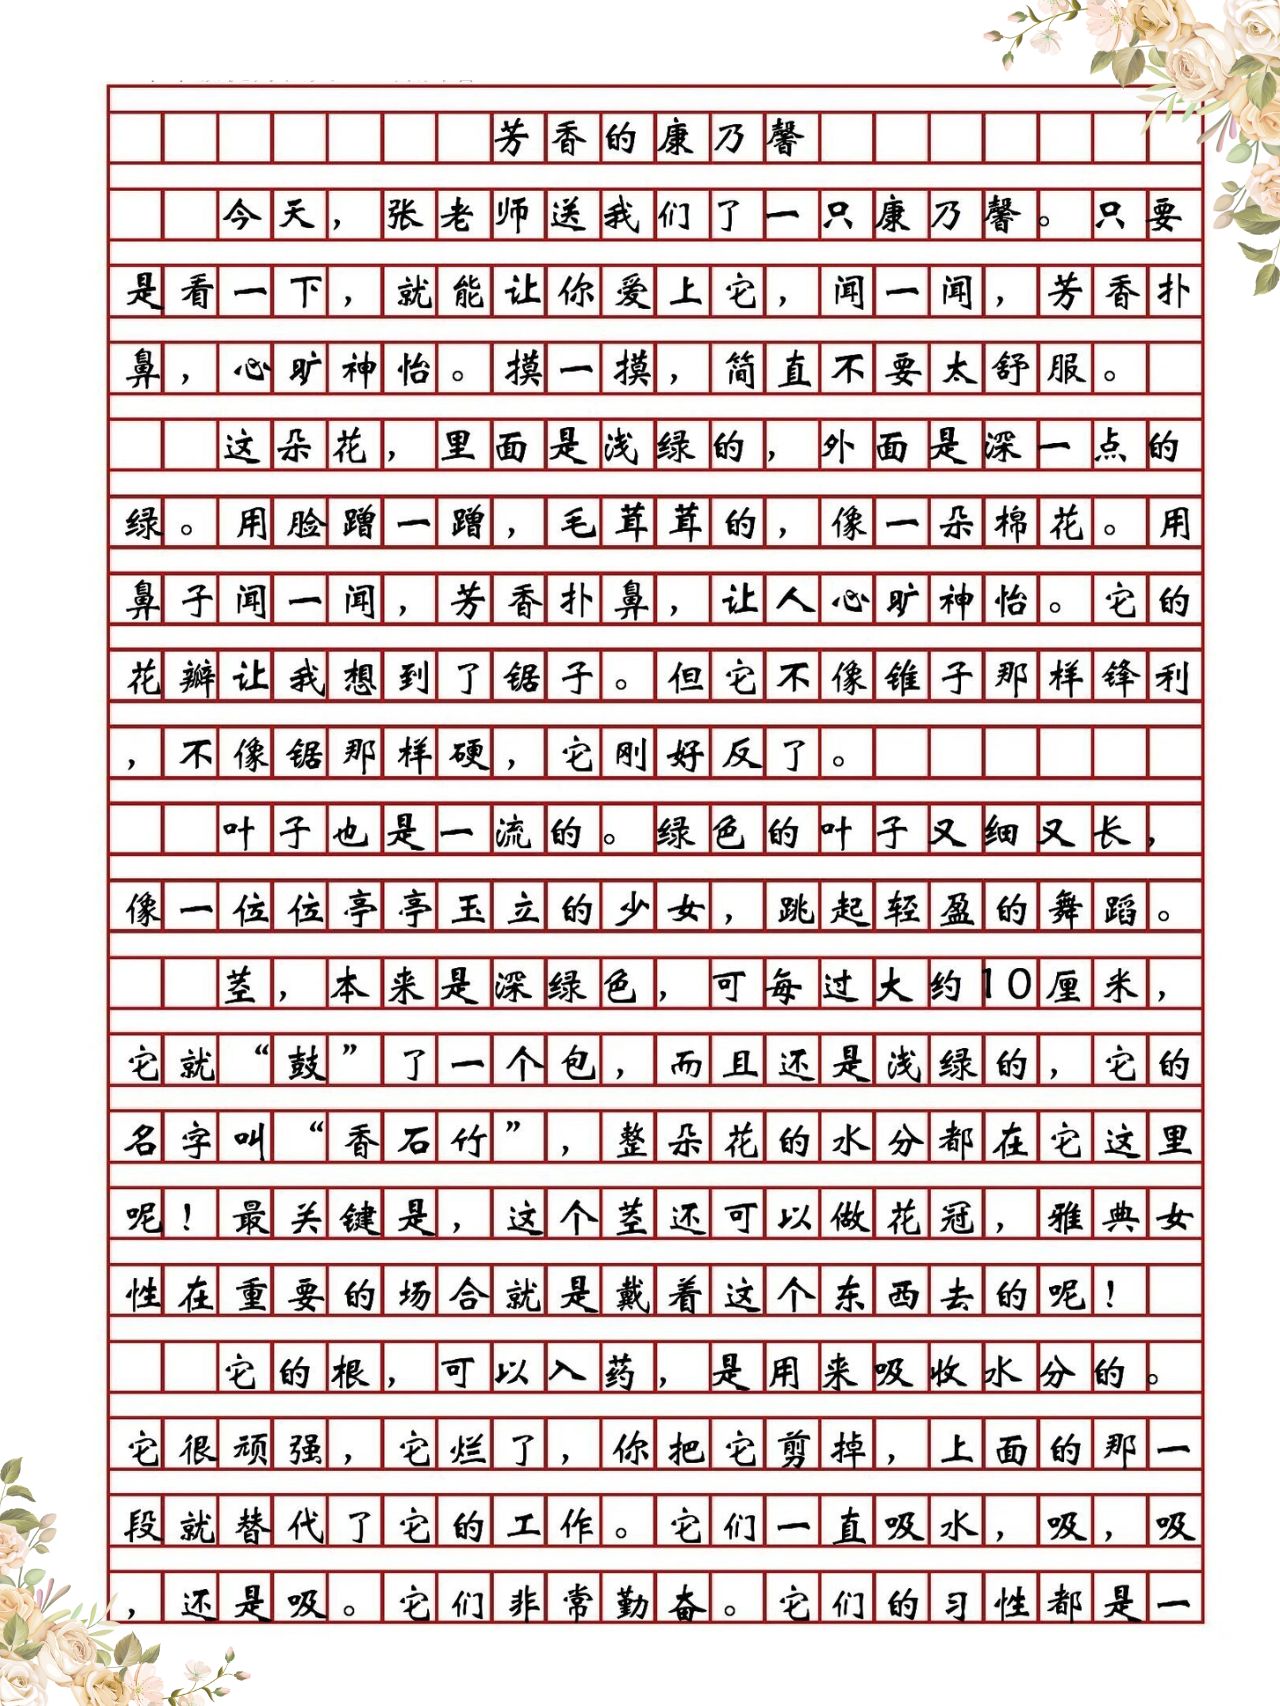 芳香的康乃馨
今天，张老师送我们了一只康乃馨。只要
是看一下，就能让你爱上它，闻一闻，芳香扑
鼻，心旷神怡。摸一摸，简直不要太舒服。
这朵花，里面是浅绿的，外面是深一点的
绿。用脸蹭一蹭，毛茸茸的，像一朵棉花。用
鼻子闻一闻，芳香扑鼻，让人心旷神怡。它的
花瓣让我想到了锯子。但它不像锥子那样锋利
，不像锯那样硬，它刚好反了。
叶子也是一流的。绿色的叶子又细又长，
像一位位亭亭玉立的少女，跳起轻盈的舞蹈。
茎，本来是深绿色，可每过大约10厘米，
它就“鼓”了一个包，而且还是浅绿的，它的
名字叫“香石竹”，整朵花的水分都在它这里
呢！最关键是，这个茎还可以做花冠，雅典女
性在重要的场合就是戴着这个东西去的呢！
它的根，可以入药，是用来吸收水分的。
它很顽强，它烂了，你把它剪掉，上面的那一
段就替代了它的工作。它们一直吸水，吸，吸
，还是吸。它们非常勤奋。它们的习性都是一